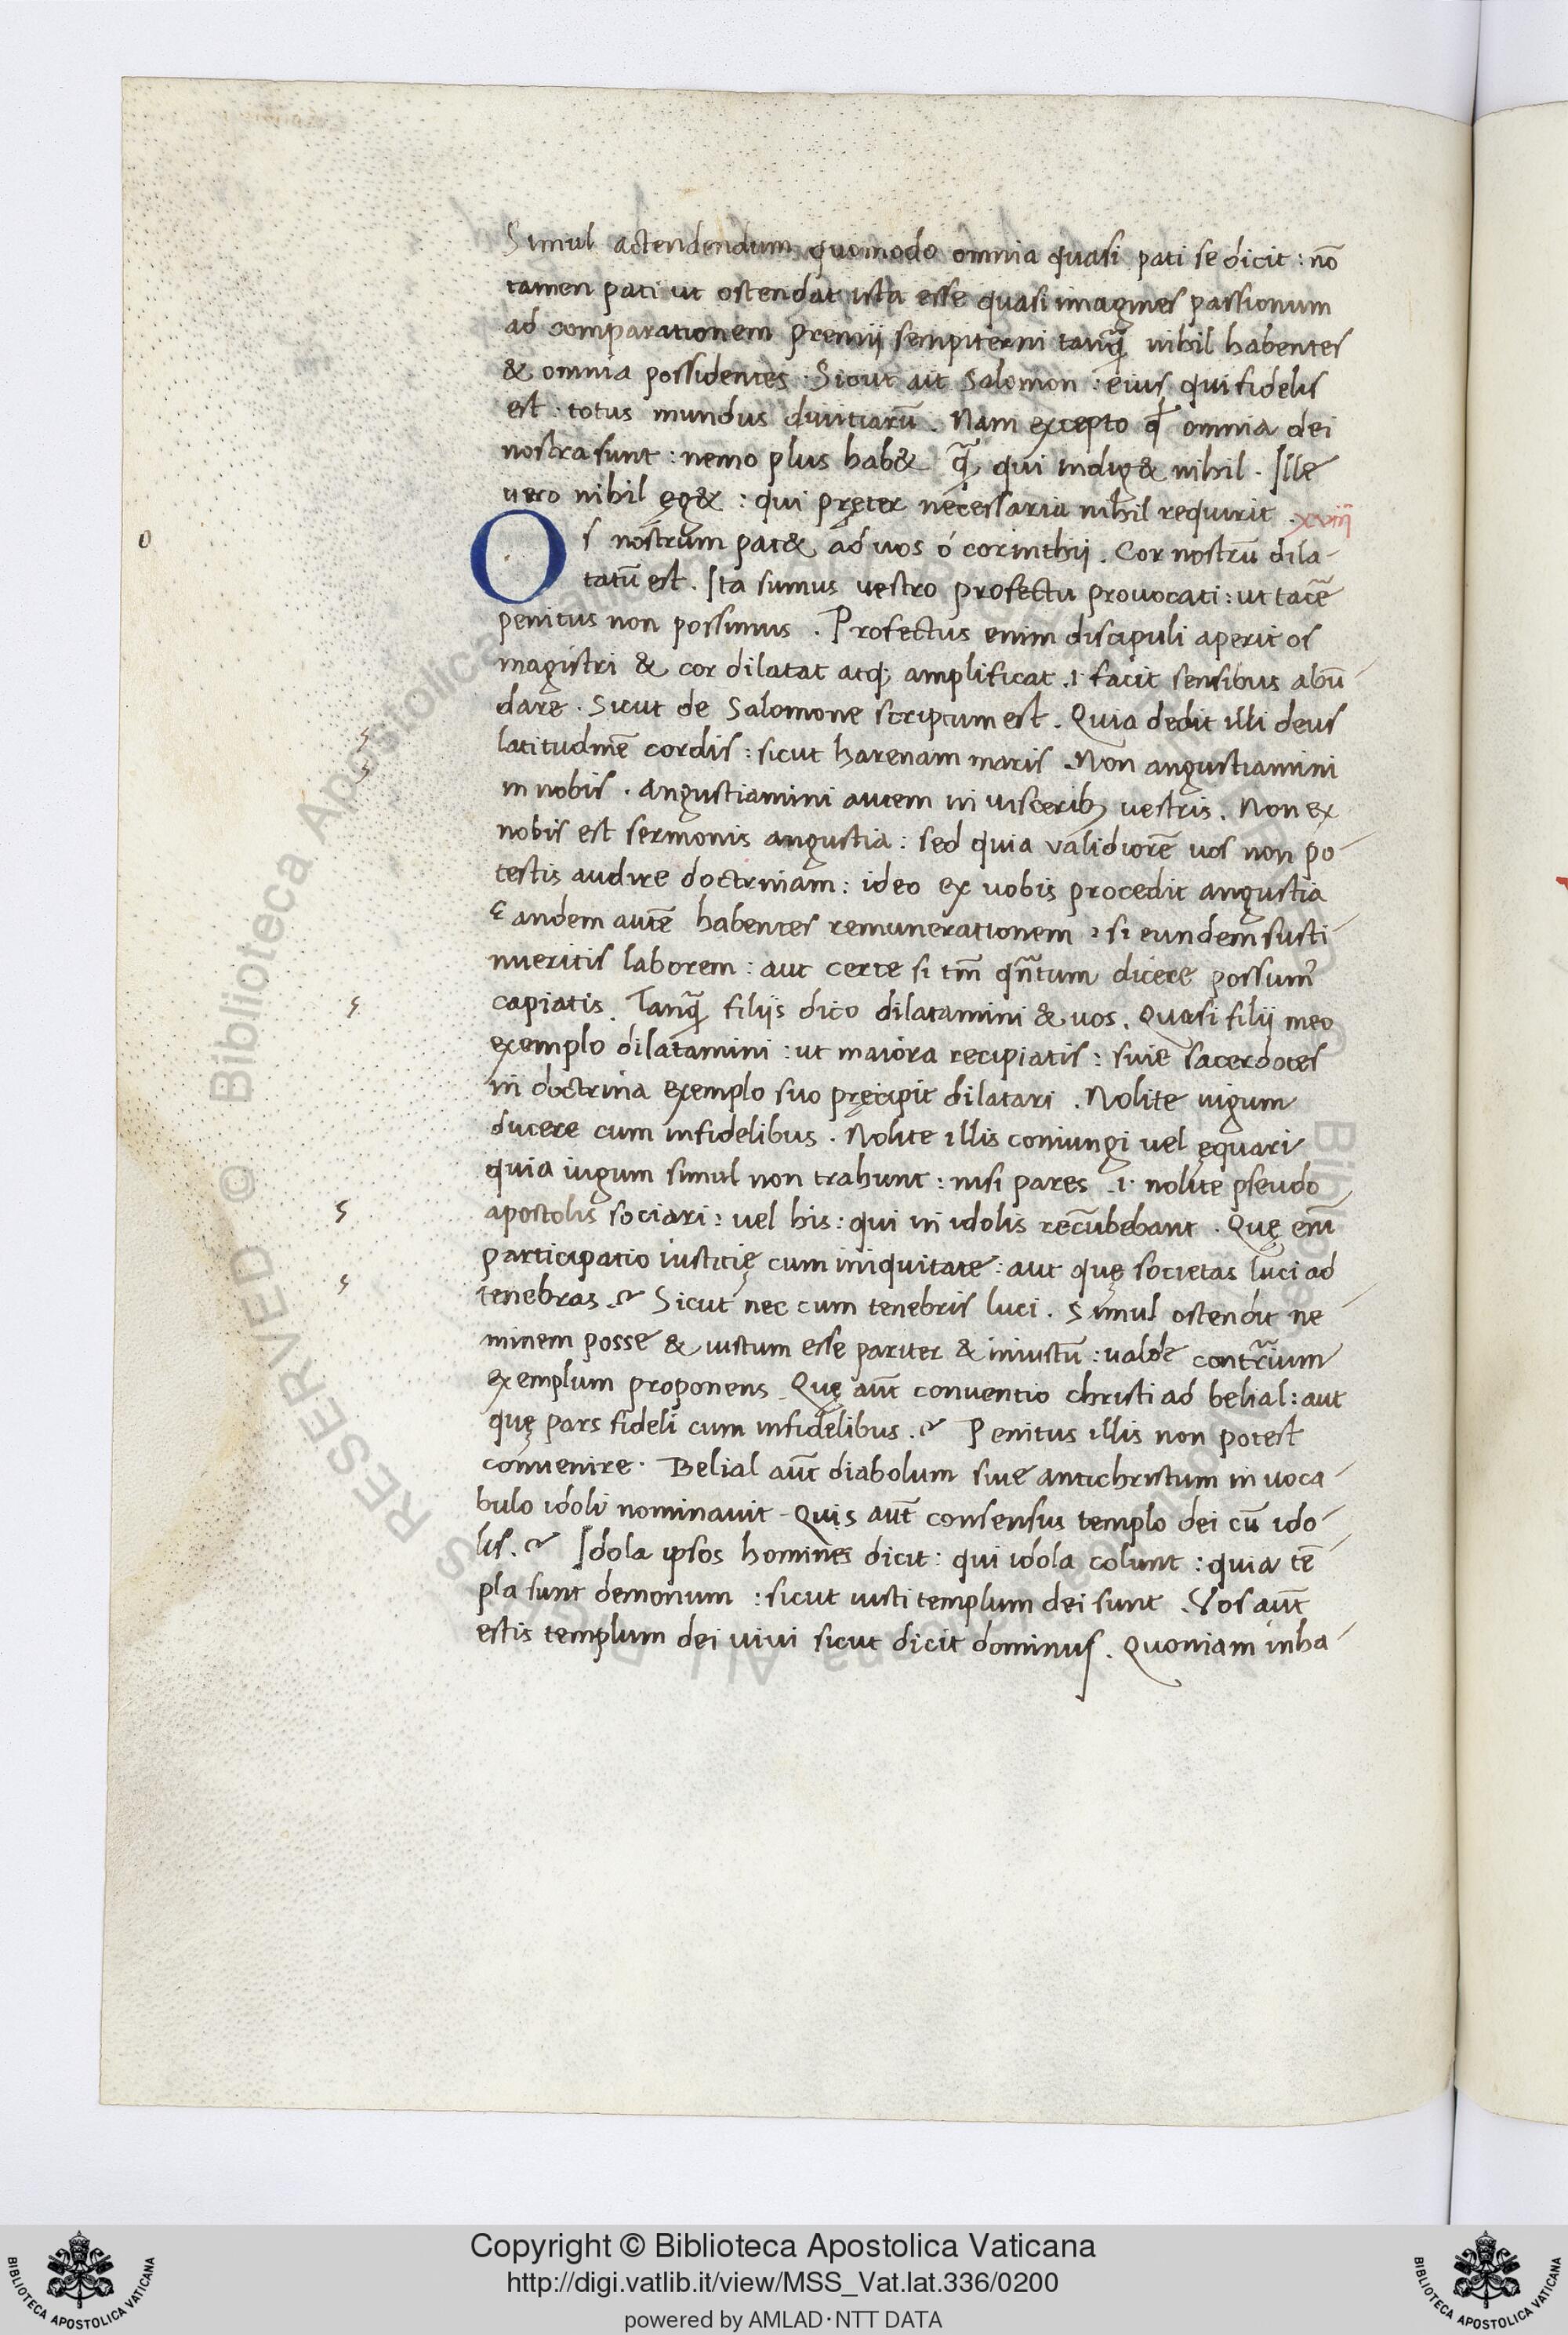 Simul actendendum quomodo omnia quasi pati se dicit : nō
tamen pati ut ostendat ista esse quasi imagines passionum
ad comparationem premii sempiterni tanq̃ nihil habentes
& omnia possidentes . Sicut ait Salomon : eius qui fidelis
est : totus mundus divitiarū . Nam excepto qđ omnia dei
nostra sunt : nemo plus hab& q̃ qui indig& nihil . Ille
vero nihil ęg& : qui pręter necessaria nihil requirit . xviij
Os nostrum pat& ad vos ó corinthij . Cor nostrū dila-
tatū est . Ita sumus vestro profectu provocati : ut tacē
penitus non possimus . Profectus enim discipuli aperit os
magistri & cor dilatat atq; amplificat .i. facit sensibus abū-
dare . Sicut de Salomone scriptum est . Quia dedit illi deus
latitudinē cordis : sicut harenam maris . Non angustiamini
in nobis . Angustiamini autem in visceribȝ vestris . Non ex
nobis est sermonis angustia : sed quia validiorē vos non po-
testis audire doctrinam : ideo ex vobis procedit angustia
Eandem autē habentes remunerationem : si eundem susti-
nueritis laborem : aut certe si tm̄ qñtum dicere possum'
capiatis . Tanq̃ filijs dico dilatamini & vos . Quasi filij meo
exemplo dilatamini : ut maiora recipiatis : sive sacerdotes
in doctrina exemplo suo pręcipit dilatari . Nolite iugum
ducere cum infidelibus . Nolite illis coniungi vel ęquari
quia iugum simul non trahunt : nisi pares .i. nolite pseudo
apostolis sociari : vel his : qui in idolis recūbebant . Quę enī
participatio iusticię cum iniquitate : aut quę societas luci ad
tenebras .? Sicut nec cum tenebris luci . Simul ostendit ne-
minem posse & iustum esse pariter & iniustū : valde contrarium
exemplum proponens . Quę aut̄ conventio christi ad belial : aut
quę pars fideli cum infidelibus .? Penitus illis non potest
convenire . Belial aut̄ diabolum sive antichristum in voca-
bulo idoli nominavit . Quis aut̄ consensus templo dei cū ido-
lis .? Idola ipsos homines dicit : qui idola colunt : quia tē-
pla sunt demonum : sicut iusti templum dei sunt . Vos aut̄
estis templum dei vivi sicut dicit dominus . Quoniam inha-
Copyright © Biblioteca Apostolica Vaticana
http://digi.vatlib.it/view/MSS_Vat.lat.336/0200
powered by AMLAD·NTT DATA